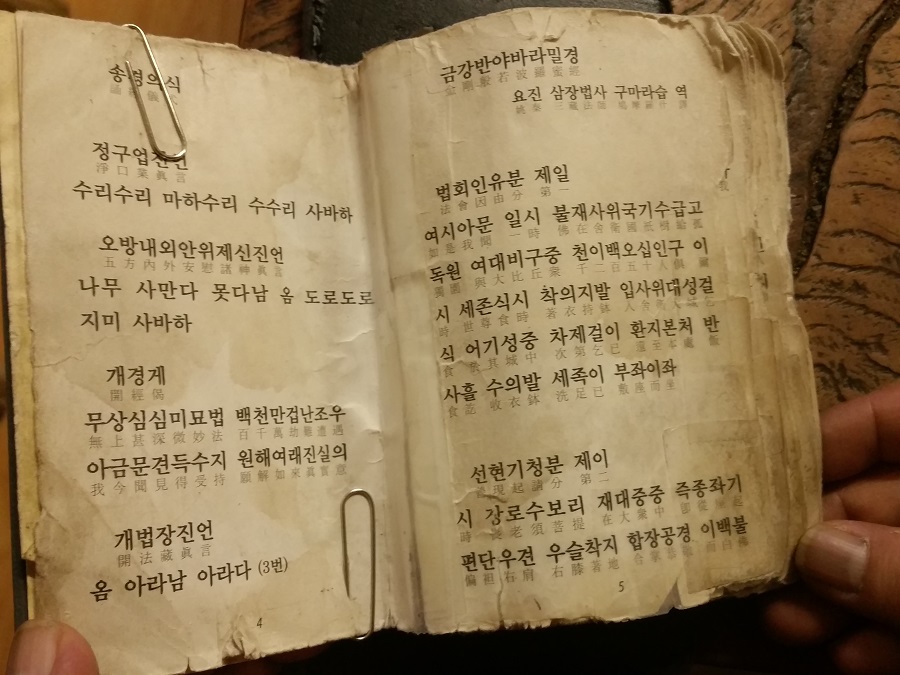 송경의식
정구업진언
淨口業眞言
수리수리 마하수리 수수리 사바하
오방내외안위제신진언
五方內外安慰諸神眞言
나무 사만다 못다남 옴 도로도로
지미 사바하
개경게
開經偈
무상심심미묘법 백천만겁난조우
無上甚深微妙法 百千萬劫難遭遇
아금문견득수지 원해여래진실의
我今聞見得受持 願解如來眞實意
개법장진언
開法藏眞言
옴 아라남 아라다 (3번)
4
금강반야바라밀경
金剛般若波羅蜜經
요진 삼장법사 구마라습 역
姚秦 三藏法師 鳩摩羅什 譯
법회인유분 제일
法會因由分 第一
여시아문 일시 불재사위국기수급고
如是我聞 一時 佛在舍衛國祇樹給孤
독원 여대비구중 천이백오십인구 이
獨園 與大比丘衆 千二百五十人俱 爾
시 세존식시 착의지발 입사위대성걸
時 世尊食時 著衣持鉢 入舍衛大城乞
식 어기성중 차제걸이 환지본처 반
食 於其城中 次第乞已 還至本處 飯
사흘 수의발 세족이 부좌이좌
食訖 收衣鉢 洗足已 敷座而坐
선현기청분 제이
善現起請分 第二
시 장로수보리 재대중중 즉종좌기
時 長老須菩提 在大衆中 卽從座起
편단우견 우슬착지 합장공경 이백불
偏袒右肩 右膝著地 合掌恭敬 而白佛
5